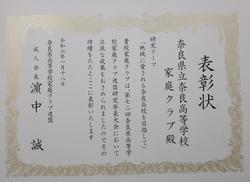 表彰状
奈良県立奈良高等学校
家庭クラブ殿
研究テーマ
「地域に愛される奈良高校を目指して」
貴校家庭クラブは第七二回奈良県高等学
校家庭クラブ連盟研究発表大会において
立派な成果をおさめられましたのでその
功績をたたえここに表彰いたします
令和六年一月十八日
奈良県高等学校家庭クラブ連盟
成人会長 濵中 誠